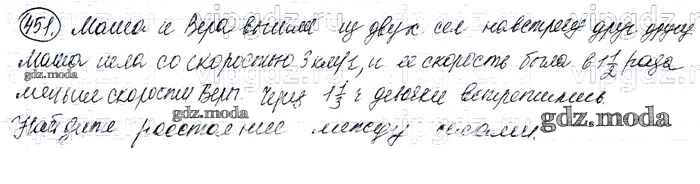 451. Маша и Вера вышли из двух сел навстречу друг другу
Маша шла со скоростью 3 км/ч, и ее скорость была в 1 1/2 раза
gdz.moda
меньше скорости Веры. Через 1 1/3 ч девочки встретились.
Найдите расстояние между селами.
gdz.moda
gdz.moda